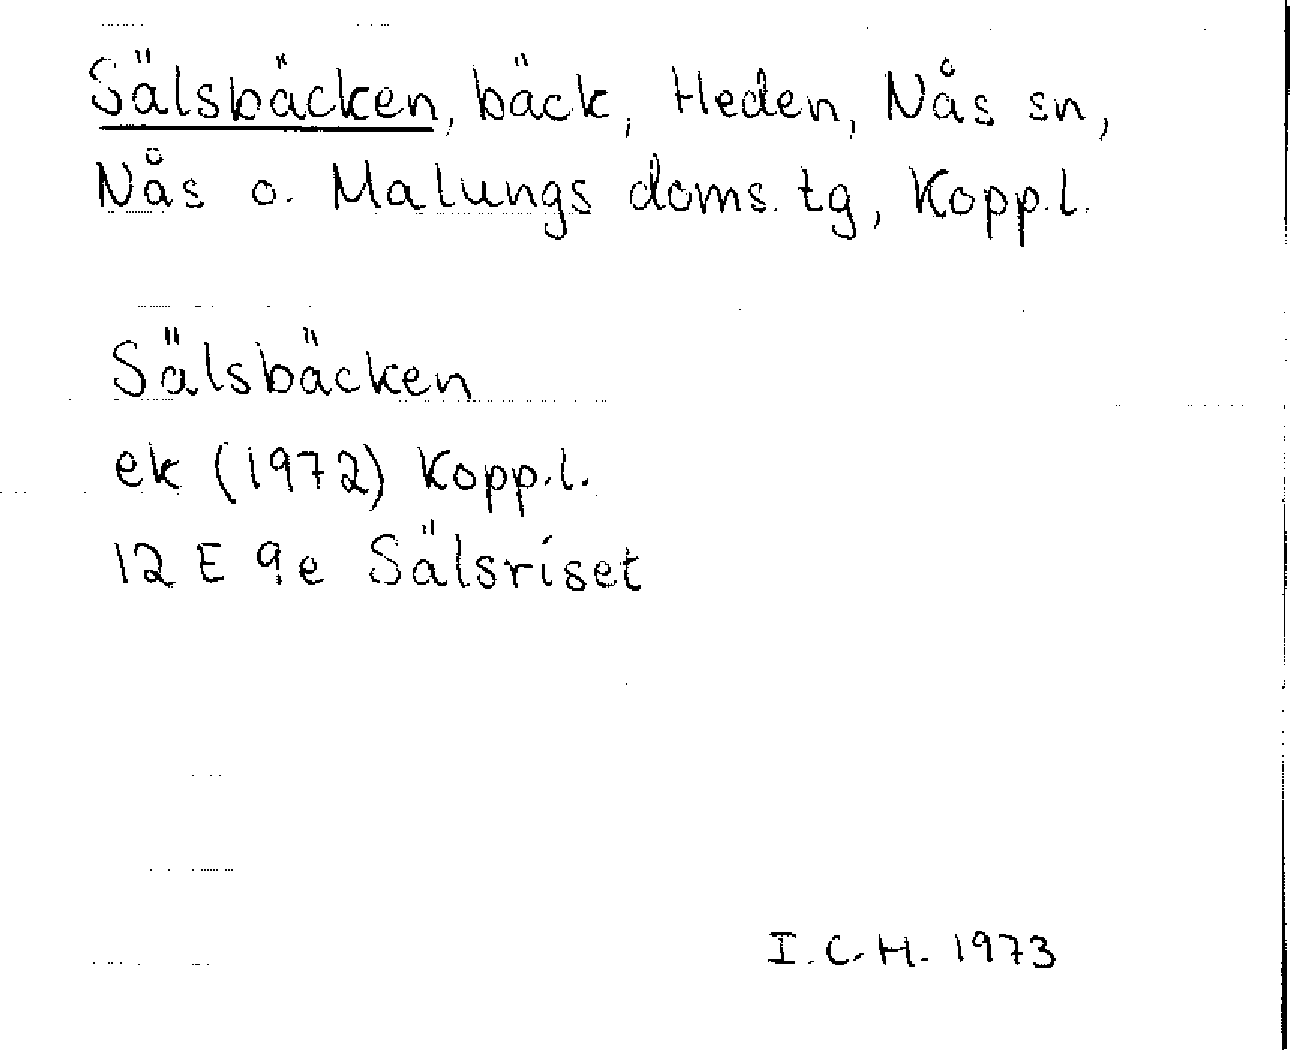 Sälsbäcken, bäck, Heden, Nås sn,
Nås o. Malungs doms. tg, Kopp.l.
Sälsbäcken
ek (1972) Kopp.l.
12 E 9e Sälsriset
I.C.H. 1973